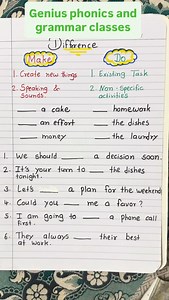 Genius phonics and
grammar classes
① Difference
Make
Do
1. Create new things
1. Existing Task
2. Speaking & sounds
2. Non-Specific activities
___ a cake
___ homework
___ an effort
___ the dishes
___ money
___ the laundry
1. We should ___ a decision soon.
2. It's your turn to ___ the dishes
tonight.
3. Let's ___ a plan for the weekend
4. Could you ___ me a favor?
5. I am going to ___ a phone call
first.
6. They always ___ their best
at work.